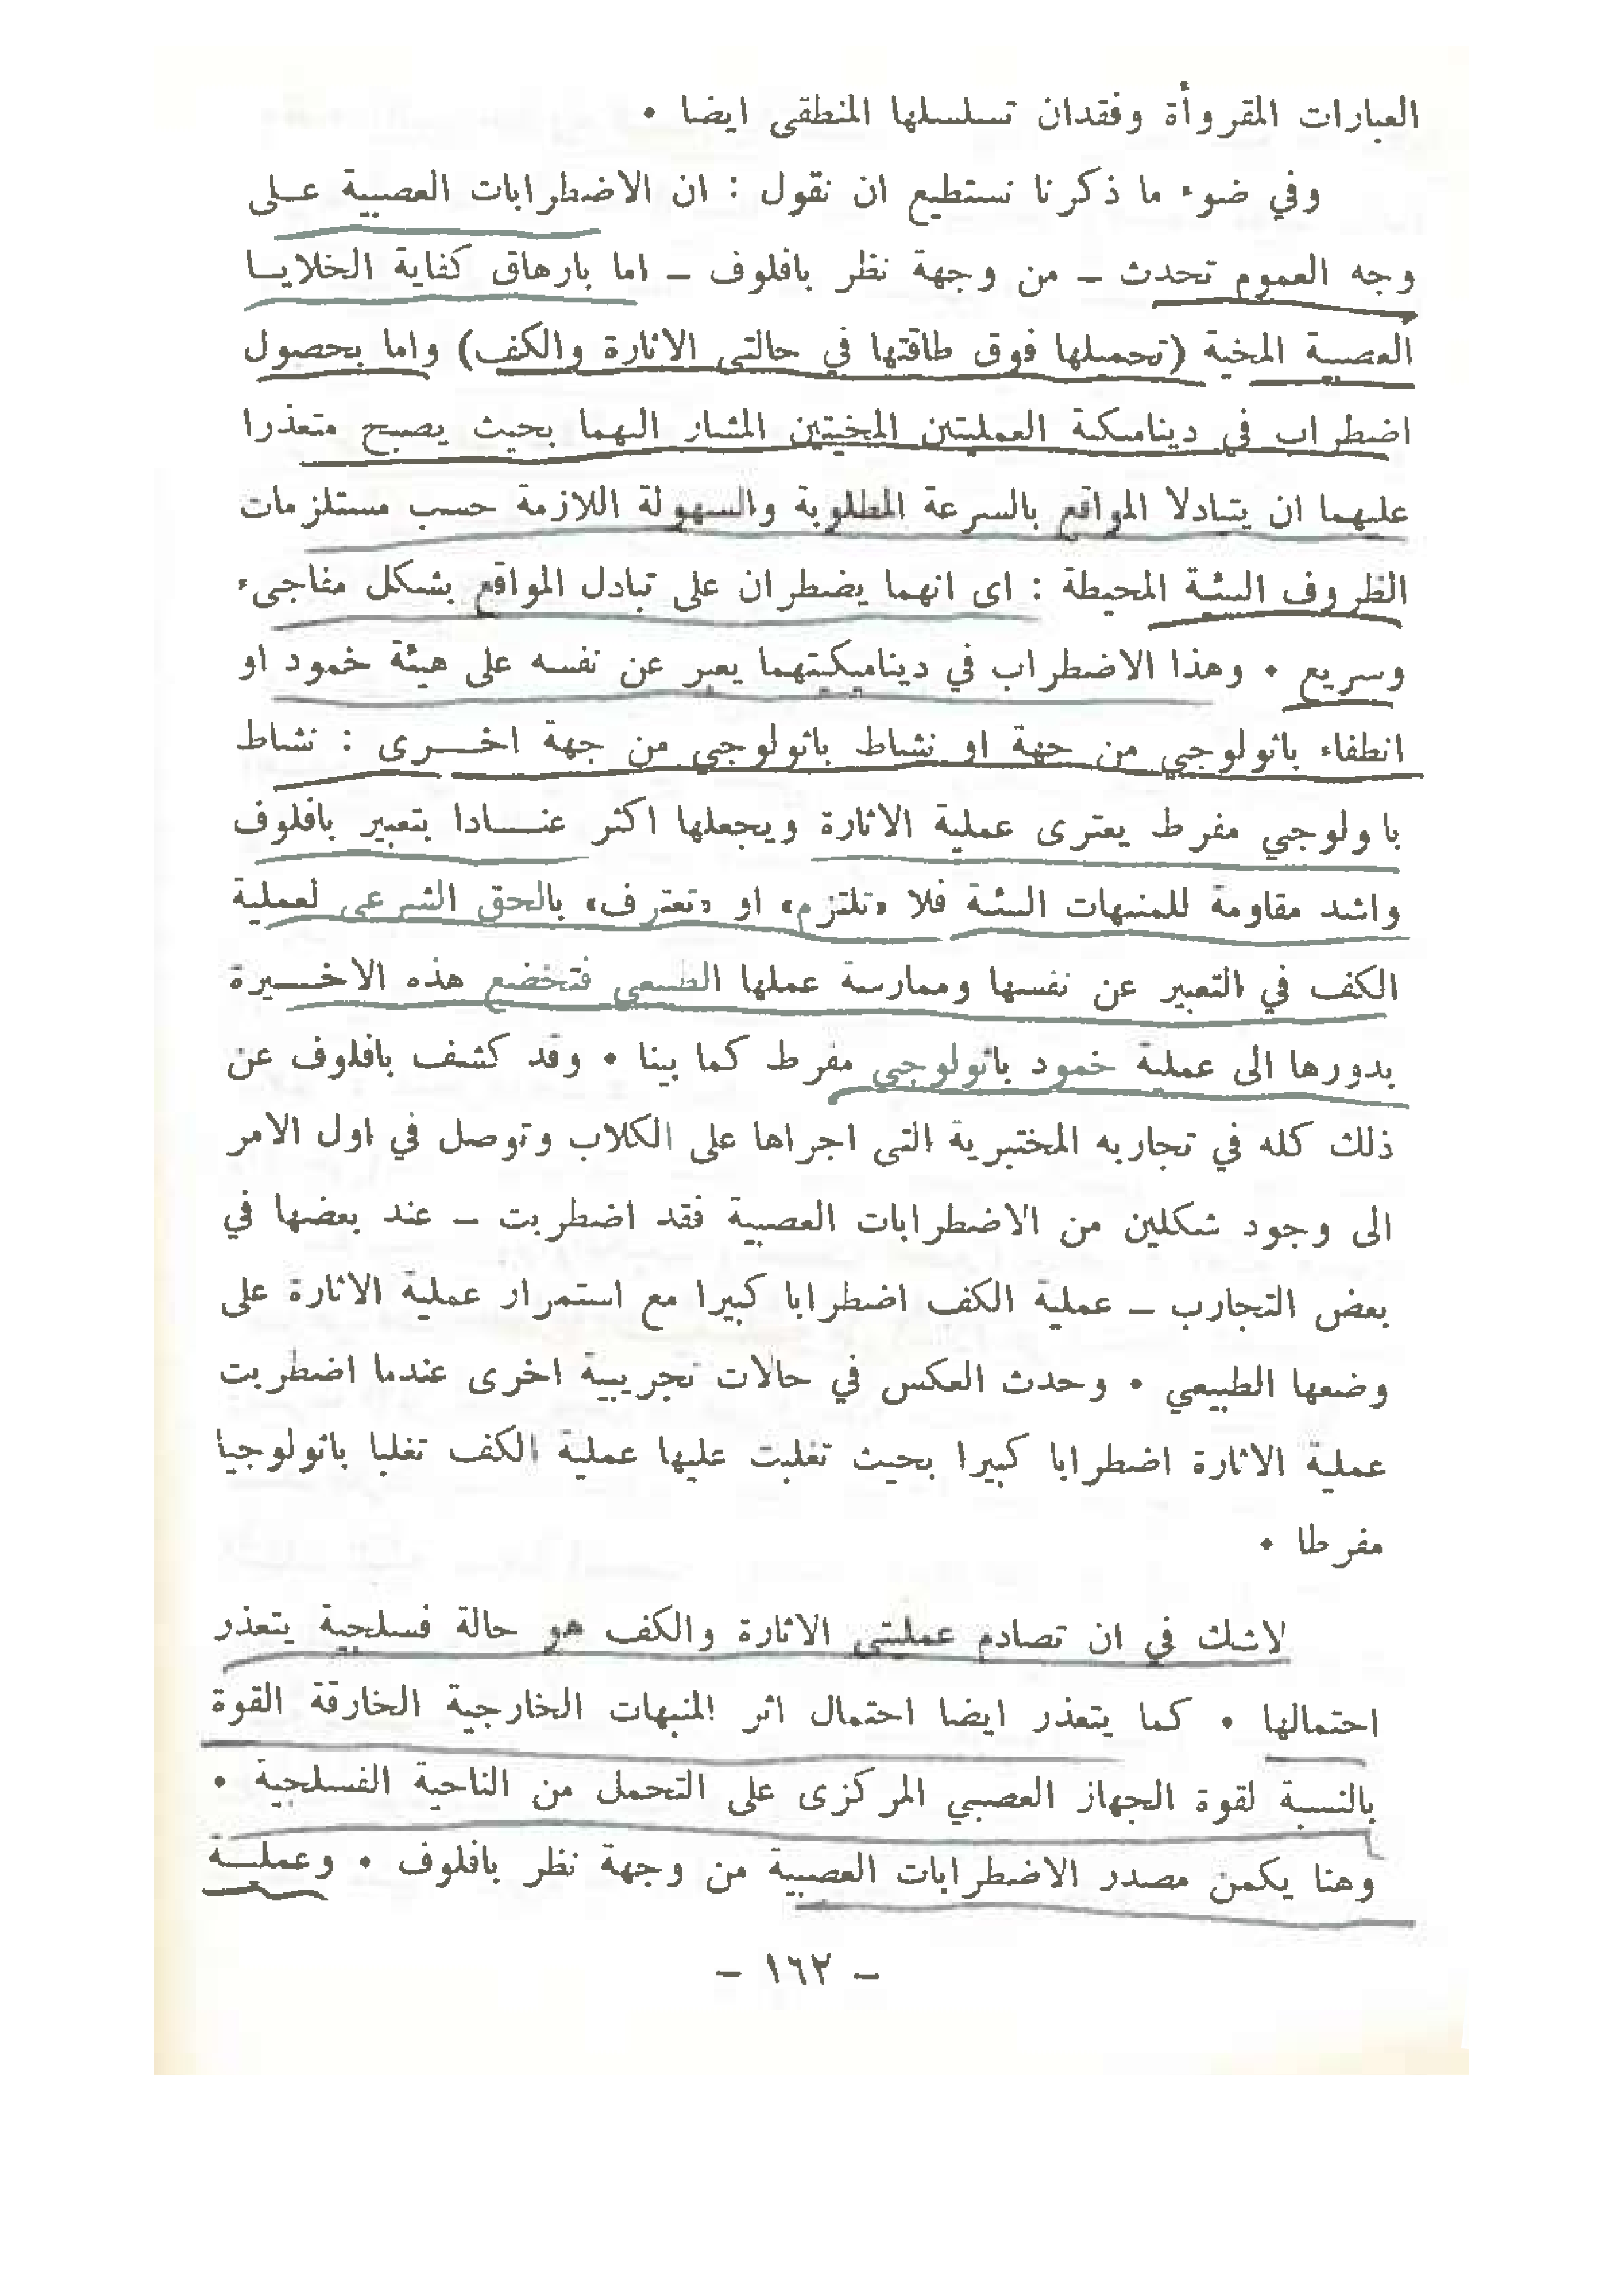 العبارات المقروأة وفقدان تسلسلها المنطقى ايضا ٠
وفي ضوء ما ذكرنا نستطيع ان نقول : ان الاضطرابات العصبية على
وجه العموم تحدث ــ من وجهة نظر بافلوف ــ اما بارهاق كفاية الخلايا
العصبية المخية (تحميلها فوق طاقتها في حالتى الاثارة والكف) واما بحصول
اضطراب في ديناميكية العمليتين المخيتين المشار اليهما بحيث يصبح متعذرا
عليهما ان يتبادلا المواقع بالسرعة المطلوبة والسهولة اللازمة حسب مستلزمات
الظروف البيئة المحيطة : اى انهما يضطران على تبادل المواقع بشكل مفاجىء
وسريع ٠ وهذا الاضطراب في ديناميكيتهما يعبر عن نفسه على هيئة خمود او
انطفاء باثولوجي من جهة او نشاط باثولوجي من جهة اخــرى : نشاط
باولوجي مفرط يعترى عملية الاثارة ويجعلها اكثر عنــادا بتعبير بافلوف
واشد مقاومة للمنبهات البيئة فلا «تلتزم» او «تعترف» بالحق الشرعى لعملية
الكف في التعبير عن نفسها وممارسة عملها الطبيعى فتخضع هذه الاخــيرة
بدورها الى عملية خمود باثولوجي مفرط كما بينا ٠ وقد كشف بافلوف عن
ذلك كله في تجاربه المختبرية التى اجراها على الكلاب وتوصل في اول الامر
الى وجود شكلين من الاضطرابات العصبية فقد اضطربت ــ عند بعضها في
بعض التجارب ــ عملية الكف اضطرابا كبيرا مع استمرار عملية الاثارة على
وضعها الطبيعي ٠ وحدث العكس في حالات تجريبية اخرى عندما اضطربت
عملية الاثارة اضطرابا كبيرا بحيث تغلبت عليها عملية الكف تغلبا باثولوجيا
مفرطا ٠
لاشك في ان تصادم عمليتى الاثارة والكف هو حالة فسلجية يتعذر
احتمالها ٠ كما يتعذر ايضا احتمال اثر المنبهات الخارجية الخارقة القوة
بالنسبة لقوة الجهاز العصبي المركزى على التحمل من الناحية الفسلجية ٠
وهنا يكمن مصدر الاضطرابات العصبية من وجهة نظر بافلوف ٠ وعمليــة
ــ ١٦٢ ــ